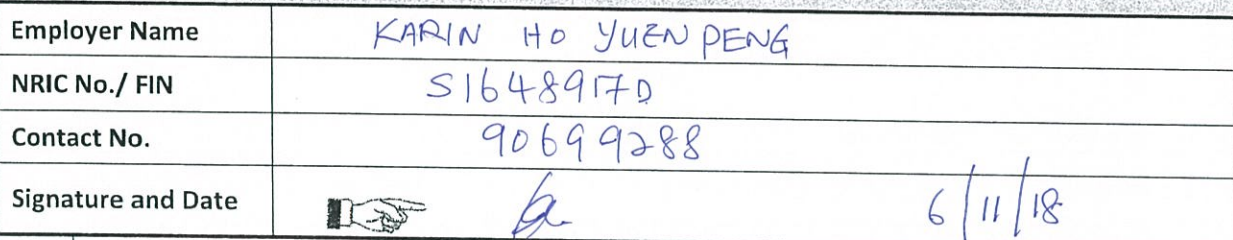 Employer Name KARIN HO YUEN PENG
NRIC No./ FIN S1648917D
Contact No. 90699288
Signature and Date 6/11/18